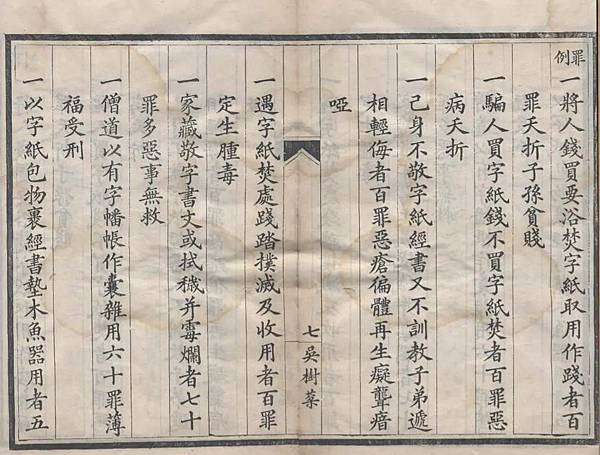 罪例
一將人錢買要浴焚字紙取用作踐者百
罪夭折子孫貧賤
一騙人買字紙錢不買字紙焚者百罪惡
病夭折
一己身不敬字紙經書又不訓教子弟遞
相輕侮者百罪惡瘡偏體再生癡聾瘖
啞
七 吳樹菜
一遇字紙焚處踐踏撲滅及收用者百罪
定生腫毒
一家藏敬字書文或拭穢并霉爛者七十
罪多惡事無救
一僧道以有字幡帳作囊雜用六十罪薄
福受刑
一以字紙包物裹經書墊木魚器用者五